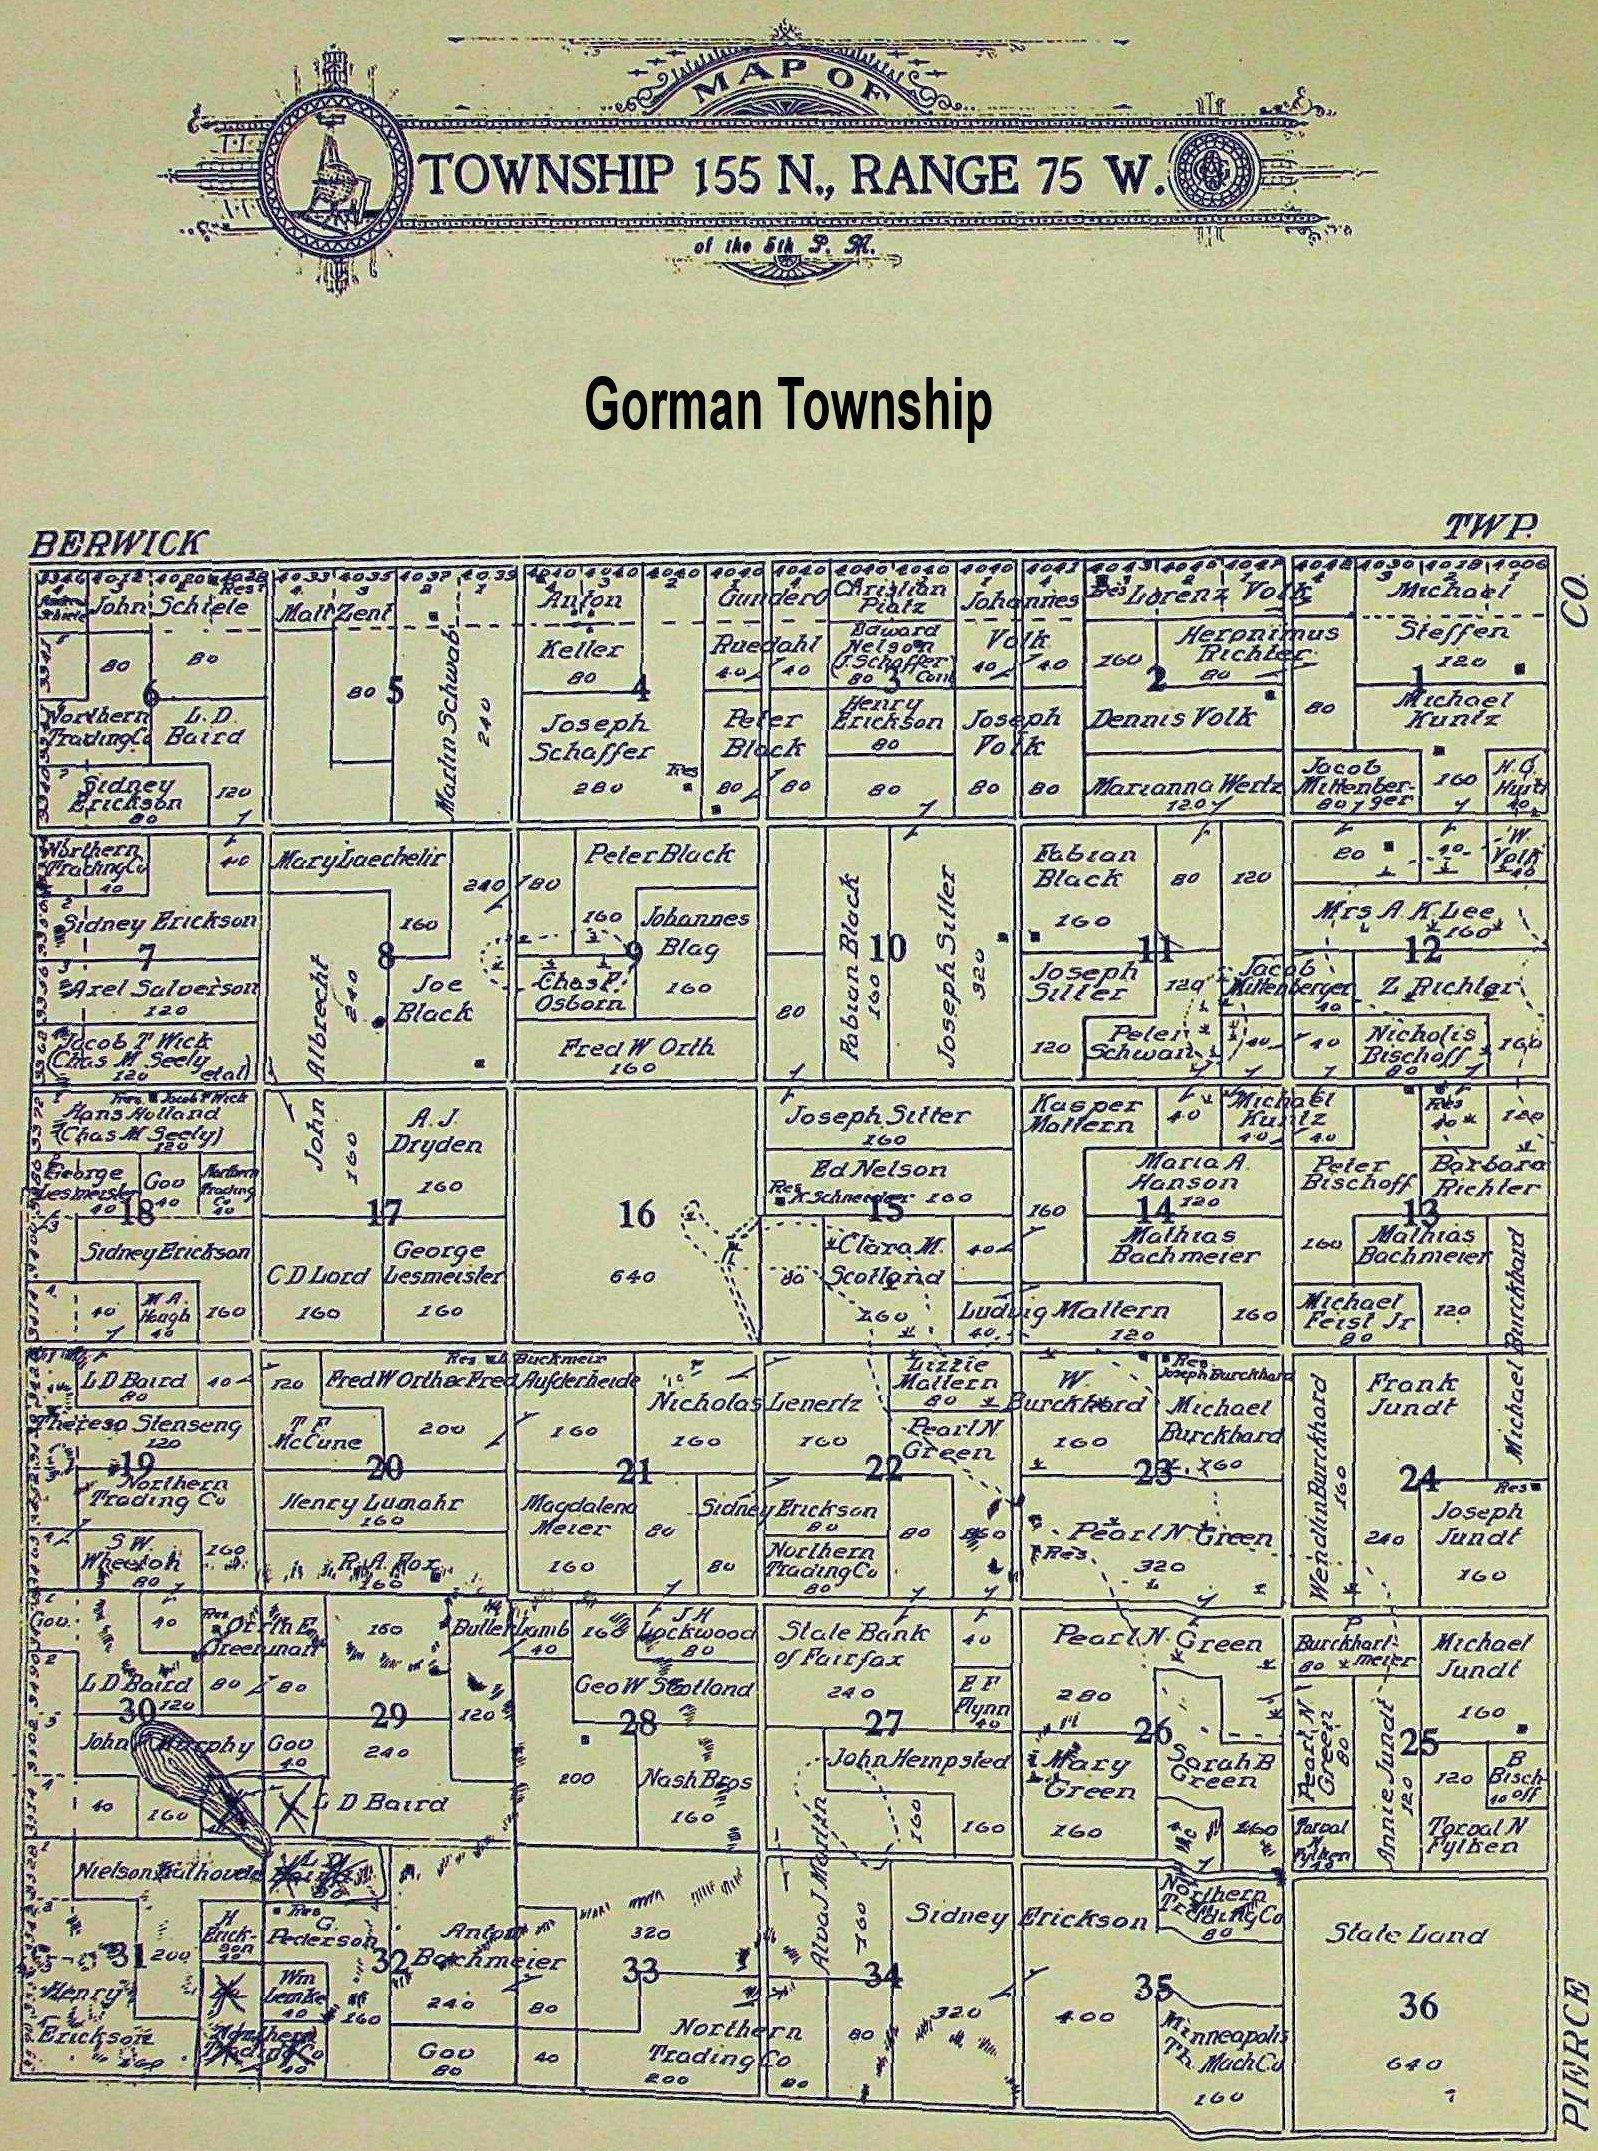 MAP OF
TOWNSHIP 155 N., RANGE 75 W.
of the 5th P. M.
Gorman Township
BERWICK
TWP.
CO.
John Schiele
Res
Matt Zent
Anton
Keller
80
Gundero
Ruedahl
Christian
Platz
Edward
Nelson
(J. Schaffer
80 Cont
Johannes
Volk
Res Lorenz Volk
Heronimus
Richter
80
Michael
Steffen
120
80
80
6
80
5
Martin Schwab
240
4
40
40
3
40
40
160
2
80
1
Northern
Trading Co
L. D.
Baird
Joseph
Schaffer
280
Res
Peter
Black
80
80
Henry
Erickson
80
80
Joseph
Volk
80
80
Dennis Volk
Michael
Kuntz
Sidney
Erickson
80
120
Marianna Wertz
120
Jacob
Mittenber-
80 ger
160
40
Northern
Trading Co
40
40
Mary Laechelir
240
80
Peter Black
Fabian
Black
160
80
120
80
40
W.
Volk
40
Sidney Erickson
160
160
Johannes
Blag
160
Fabian Black
160
Joseph Sitter
320
Mrs A. K. Lee
160
7
8
9
10
11
12
Axel Salverson
120
John Albrecht
240
Joe
Black
Chas P.
Osborn
80
Joseph
Sitter
120
120
Jacob
Mittenberger
40
Z. Richter
Jacob T Wick
(Chas M Seely
120 etal)
Fred W Orth
160
Peter
Schwan
40
40
Nicholis
Bischoff
80
160
Res. Jacob T Wick
Hans Holland
(Chas M Seely)
120
160
A. J.
Dryden
160
Joseph Sitter
160
Kasper
Mattern
40
Michael
Kuntz
40
40
Res
40
George
Lesmeister
40
Gov
40
Northern
Trading
Co
40
Ed Nelson
Res
K Schneider 160
160
Maria A.
Hanson
120
Peter
Bischoff
Barbara
Richter
18
17
16
15
14
13
Sidney Erickson
C D Lord
160
George
Lesmeister
160
640
80
Clara M.
Scotland
160
40
Mathias
Bachmeier
160
Mathias
Bachmeier
Michael Burckhard
40
M. A.
Hough
40
160
Ludwig Mattern
40
120
160
Michael
Feist Jr
80
120
L D Baird
80
40
120
Res L Buckmeir
Fred W Orth & Fred Aufderheide
Nicholas Lenertz
160
160
Lizzie
Mattern
80
W
Burckhard
160
Res
Joseph Burckhard
Michael
Burckhard
160
Wendlin Burckhard
160
Frank
Jundt
Michael Burckhard
Theresa Stenseng
120
T F
McCune
200
160
Pearl N
Green
19
20
21
22
23
24
Northern
Trading Co
Henry Lumahr
160
Magdalena
Meier
160
80
Sidney Erickson
80
80
Pearl N Green
320
Res
240
Res
Joseph
Jundt
160
S W
Wheeloh
80
160
R. A. Fox
160
80
Northern
Trading Co
80
Gov
40
Res
Orrin E
Greenman
160
Butler Lamb
40
160
J H
Lockwood
80
State Bank
of Fairfax
240
40
Pearl N. Green
280
P
Burckhart-
80 meier
Michael
Jundt
160
L D Baird
120
80
80
120
Geo W Scotland
E F
Flynn
40
30
29
28
27
26
25
John Murphy
Gov
40
240
200
Nash Bros
160
John Hempsted
Mary
Green
160
Sarah B
Green
160
Pearl N
Green
80
Annie Jundt
120
120
B
Bisch-
off
40
40
160
L D Baird
160
160
Torval
N
Fylken
40
Torval N
Fylken
Nielson Kalhovde
H
Erick-
son
40
Res
G.
Pederson
Anton
Bachmeier
240
320
Alva J Martin
160
Sidney Erickson
320
400
Northern
Trading Co
80
State Land
31
200
32
33
34
35
36
Henry
Erickson
Wm
Lembke
40
160
80
80
Northern
Trading Co
40
Gov
80
40
Northern
Trading Co
200
80
Minneapolis
Th. Mach Co
160
640
PIERCE